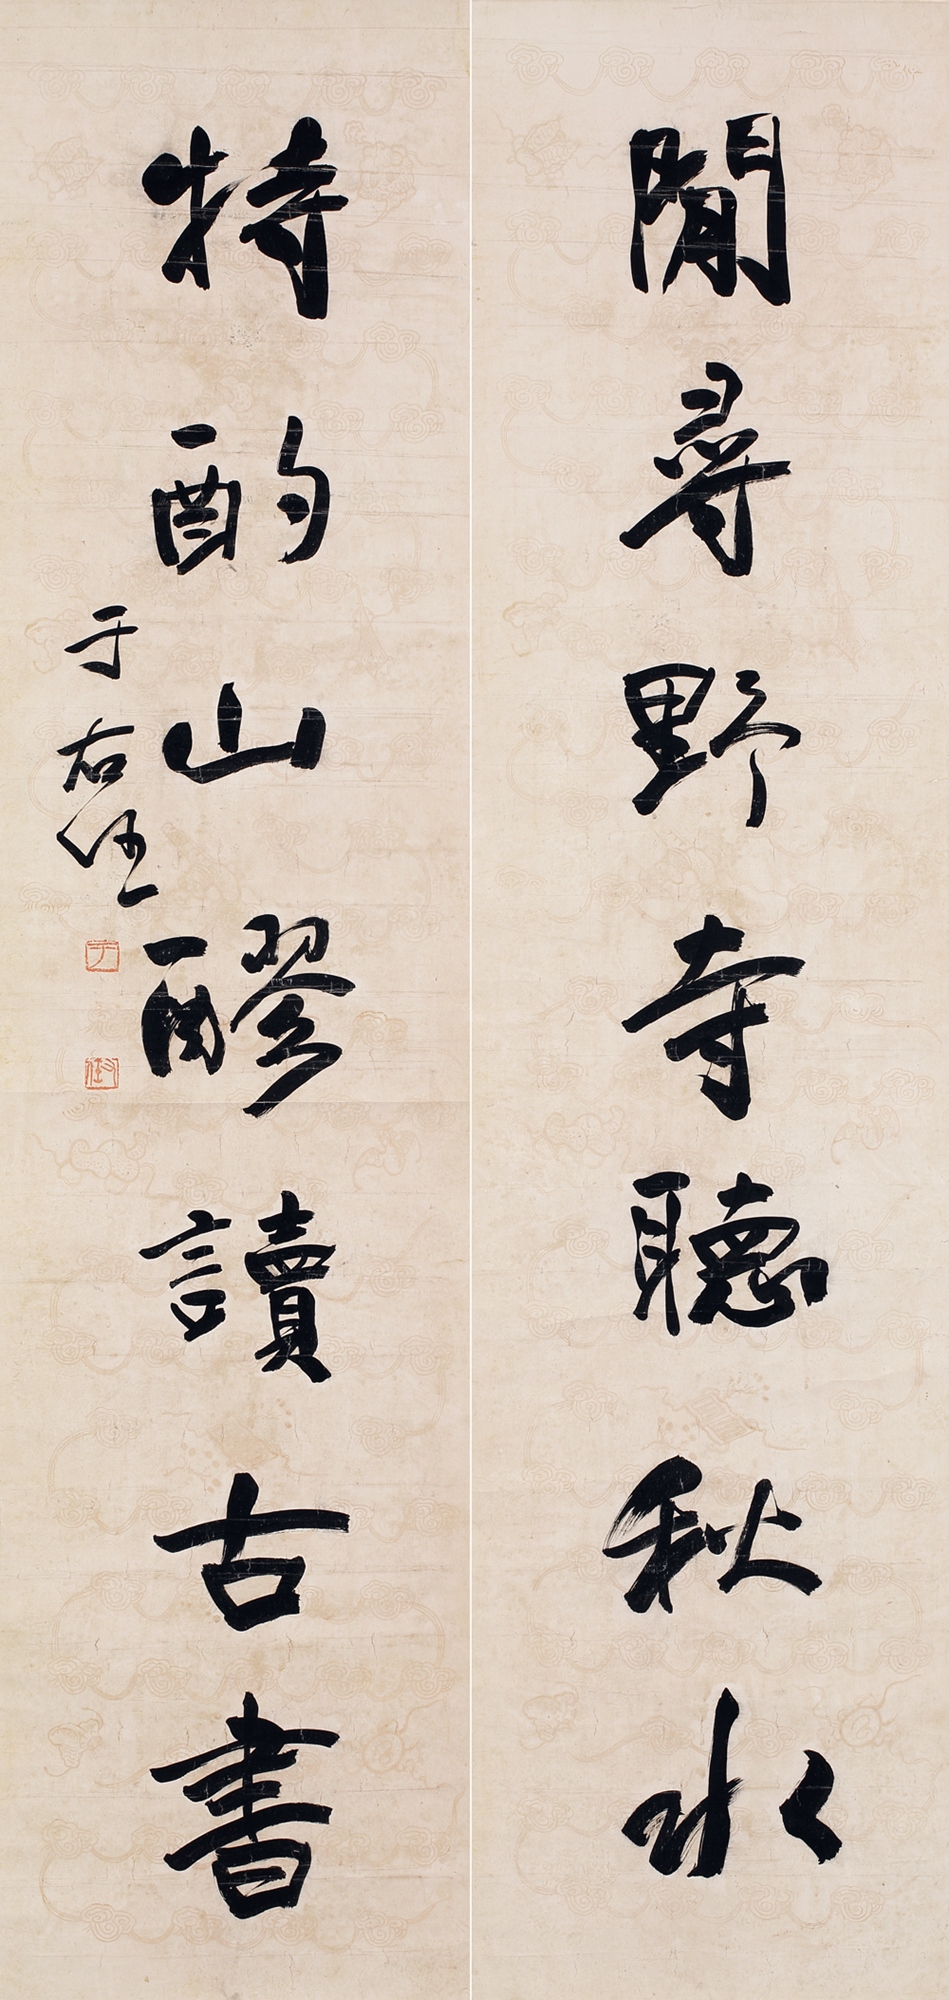 閒尋野寺聽秋水
特酌山醪讀古書
于右任